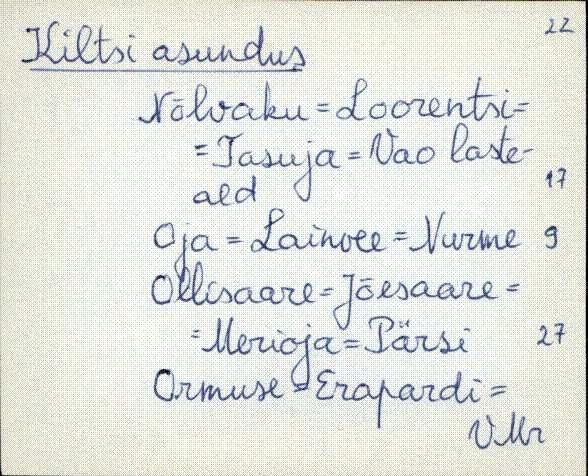 22
Kiltsi asundus
Nõlvaku = Loorentsi =
= Tasuja = Vao laste-
aed 17
Oja = Lainvee = Nurme 9
Ollisaare = Jõesaare =
= Merioja = Pärsi 27
Ormuse = Erapardi =
VMr